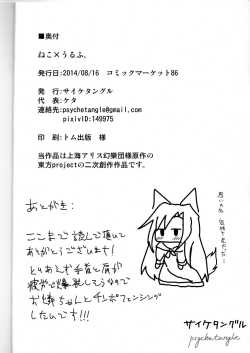 ■奥付
ねこ×うるふ。
発行日:2014/08/16　コミックマーケット86
発　行:サイケタングル
代　表:ケタ
連絡先:psychetangle@gmail.com
pixivID:149975
印　刷:トム出版　様
当作品は上海アリス幻樂団様原作の
東方projectの二次創作作品です。
あとがき:
ここまで読んで頂いて
ありがとうございます!
とりあえず手首と肩が
疲労で爆発してるので
お姉ちゃんとチンポフェンシング
したいです!!!
サイケタングル
psychetangle